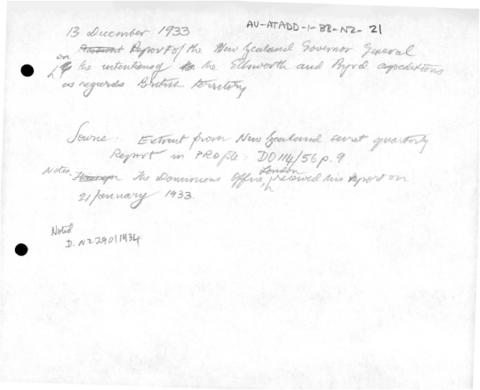 13 December 1933
AU-ATADD-1-BB-NZ-21
Report of the New Zealand Governor General
on the intentions of the Ellsworth and Byrd expeditions
as regards British territory
Source: Extract from New Zealand secret quarterly
Report in PRO file: DO 114/56 p. 9
Notes: The Dominions Office, London received his report on
21 January 1933.
Noted
D. NZ 290/1934